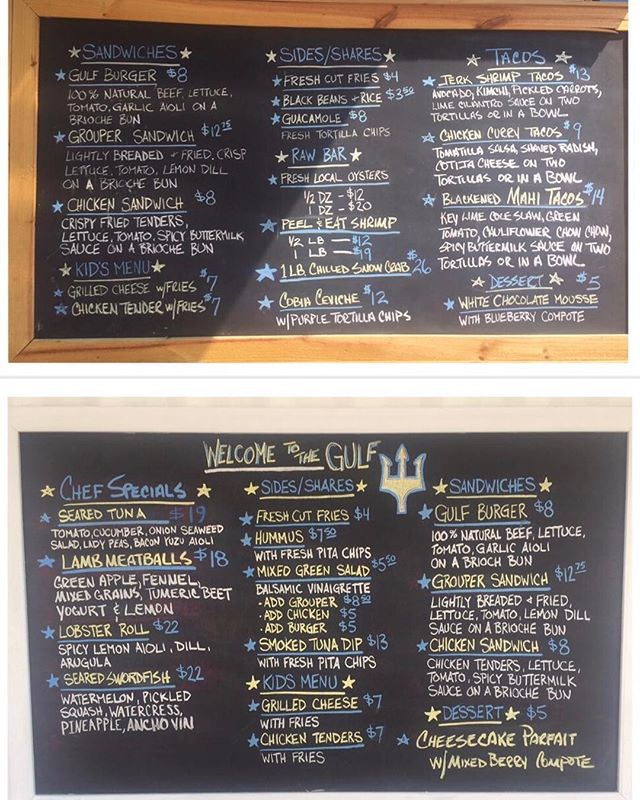 SANDWICHES
GULF BURGER $8
100% NATURAL BEEF, LETTUCE,
TOMATO, GARLIC AIOLI ON A
BRIOCHE BUN
GROUPER SANDWICH $12.75
LIGHTLY BREADED + FRIED, CRISP
LETTUCE, TOMATO, LEMON DILL
ON A BRIOCHE BUN
CHICKEN SANDWICH $8
CRISPY FRIED TENDERS,
LETTUCE, TOMATO, SPICY BUTTERMILK
SAUCE ON A BRIOCHE BUN
KID'S MENU
GRILLED CHEESE W/FRIES $7
CHICKEN TENDER W/FRIES $7
SIDES/SHARES
FRESH CUT FRIES $4
BLACK BEANS + RICE $3.50
GUACAMOLE $8
FRESH TORTILLA CHIPS
RAW BAR
FRESH LOCAL OYSTERS
1/2 DZ - $12
1 DZ - $20
PEEL & EAT SHRIMP
1/2 LB — $12
1 LB — $19
1 LB CHILLED SNOW CRAB $26
COBIA CEVICHE $12
W/PURPLE TORTILLA CHIPS
TACOS
JERK SHRIMP TACOS $13
AVOCADO, KIMCHI, PICKLED CARROTS,
LIME CILANTRO SAUCE ON TWO
TORTILLAS OR IN A BOWL
CHICKEN CURRY TACOS $9
TOMATILLA SALSA, SHAVED RADISH,
COTIJA CHEESE ON TWO
TORTILLAS OR IN A BOWL
BLACKENED MAHI TACOS $14
KEY LIME COLE SLAW, GREEN
TOMATO, CAULIFLOWER CHOW CHOW,
SPICY BUTTERMILK SAUCE ON TWO
TORTILLAS OR IN A BOWL
DESSERT $5
WHITE CHOCOLATE MOUSSE
WITH BLUEBERRY COMPOTE
WELCOME TO THE GULF
CHEF SPECIALS
SEARED TUNA $19
TOMATO, CUCUMBER, ONION SEAWEED
SALAD, LADY PEAS, BACON YUZU AIOLI
LAMB MEATBALLS $18
GREEN APPLE, FENNEL,
MIXED GRAINS, TUMERIC BEET
YOGURT & LEMON
LOBSTER ROLL $22
SPICY LEMON AIOLI, DILL,
ARUGULA
SEARED SWORDFISH $22
WATERMELON, PICKLED
SQUASH, WATERCRESS,
PINEAPPLE, ANCHO VIN
SIDES/SHARES
FRESH CUT FRIES $4
HUMMUS $7.50
WITH FRESH PITA CHIPS
MIXED GREEN SALAD $5.50
BALSAMIC VINAIGRETTE
- ADD GROUPER $8.50
- ADD CHICKEN $5
- ADD BURGER $5
SMOKED TUNA DIP $13
WITH FRESH PITA CHIPS
KIDS MENU
GRILLED CHEESE $7
WITH FRIES
CHICKEN TENDERS $7
WITH FRIES
SANDWICHES
GULF BURGER $8
100% NATURAL BEEF, LETTUCE,
TOMATO, GARLIC AIOLI
ON A BRIOCH BUN
GROUPER SANDWICH $12.75
LIGHTLY BREADED + FRIED,
LETTUCE, TOMATO, LEMON DILL
SAUCE ON A BRIOCHE BUN
CHICKEN SANDWICH $8
CHICKEN TENDERS, LETTUCE,
TOMATO, SPICY BUTTERMILK
SAUCE ON A BRIOCHE BUN
DESSERT $5
CHEESECAKE PARFAIT
W/MIXED BERRY COMPOTE